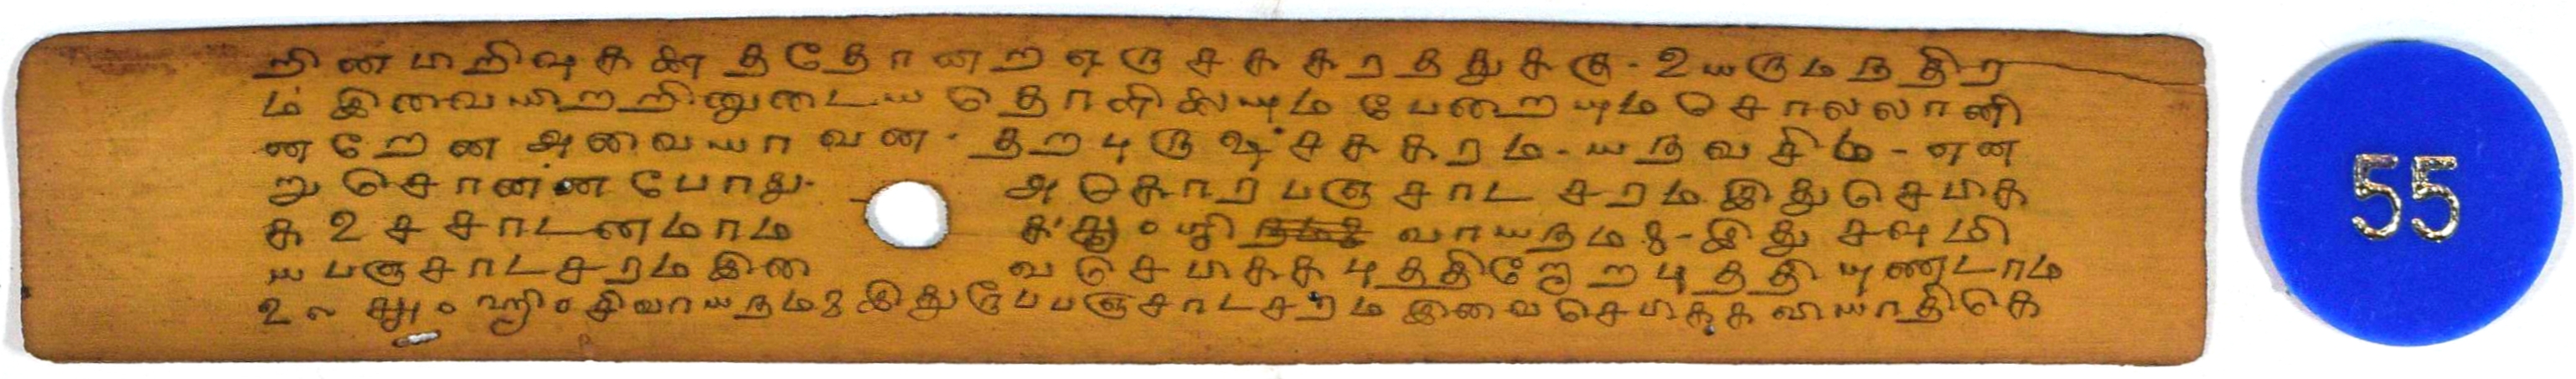 றினமறிஷகண்த தோனற ஏரு சககரததுககு. உயருமநதிர
ம் இவையிறறினுடைய தொளிலையும பேறையும சொலலாளி
னறேன அவையாவன. தறபுருஷசககரம. யநவசிம - என
று சொனன போது. அகொர பஞசாடசரம இது செபிக
க உசசாடனமாம வாயநம இது சஷமி
ய பஞசாடசரம இவை வ செபிகக புததிரேறபுததியுணடாம
உ௺ ஹிீ சிவாயநம இதுரூபபஞசாடசரம இவை செபிகக வியாதிகெ
55